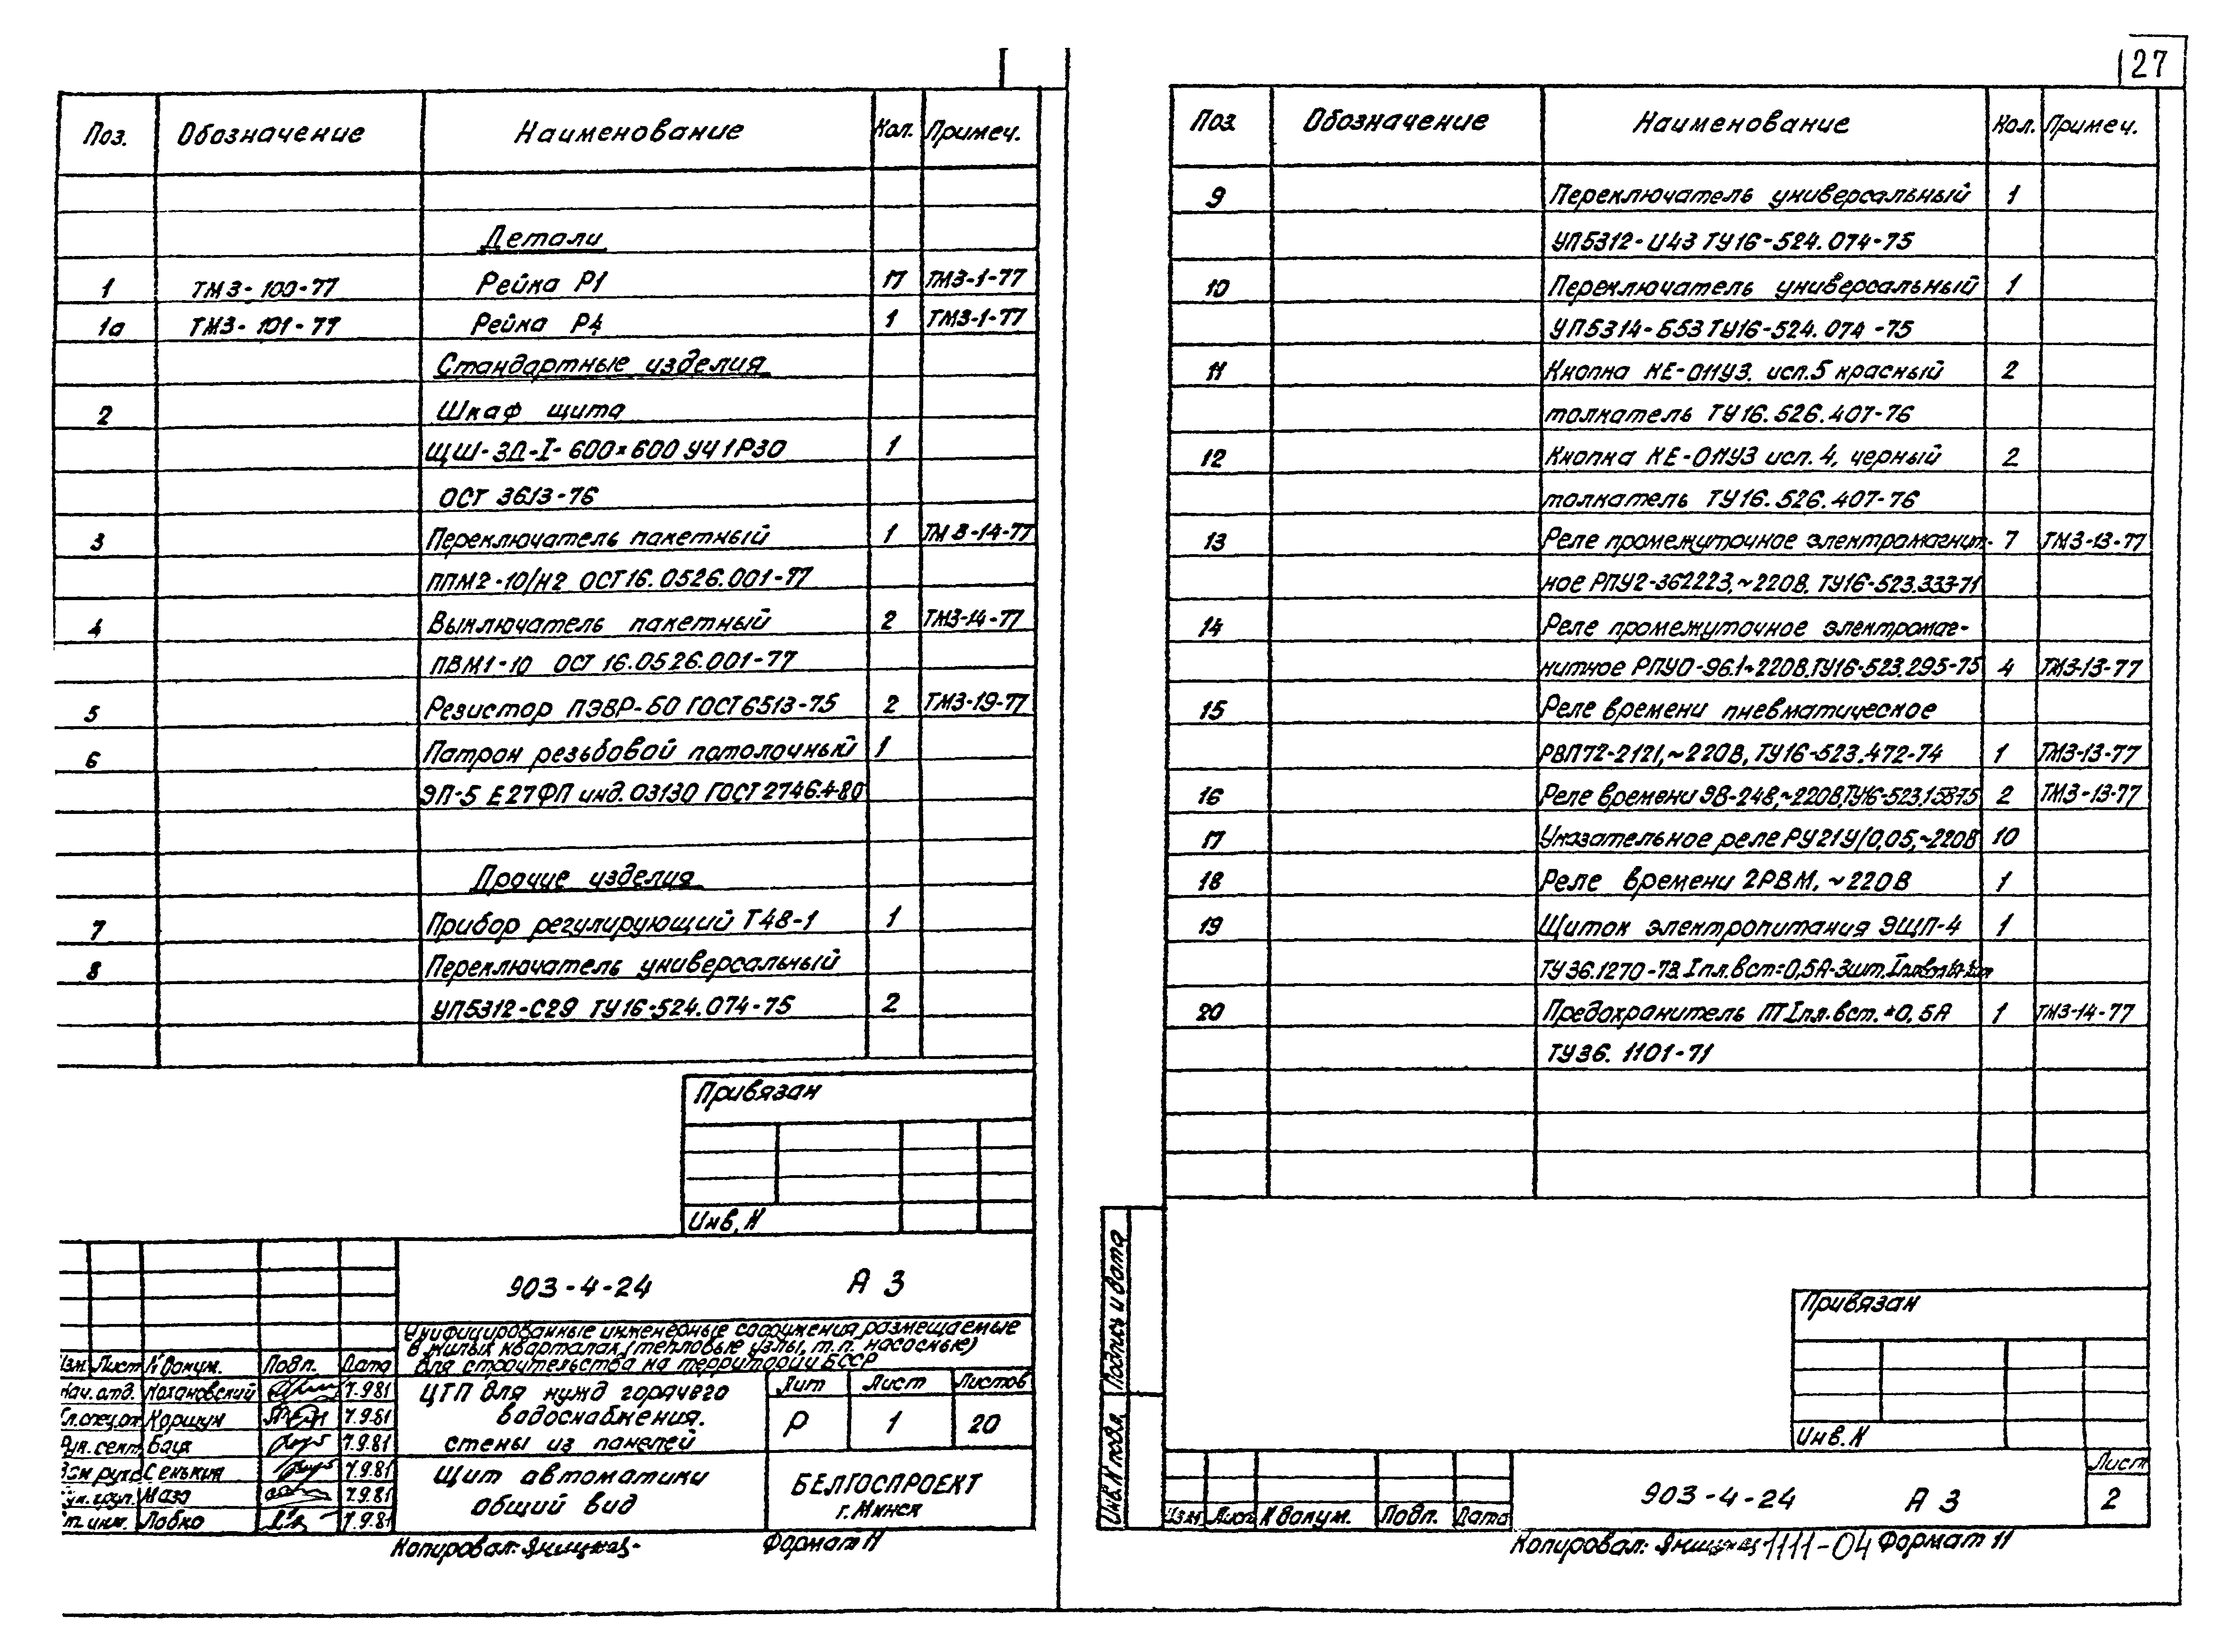 27
Поз. Обозначение Наименование Кол. Примеч.
Детали
1 ТМ3-100-77 Рейка Р1 17 ТМ3-1-77
1а ТМ3-101-77 Рейка Р4 1 ТМ3-1-77
Стандартные изделия
2 Шкаф щита
ЩШ-ЗД-I-600×600 УЧ 1Р30 1
ОСТ 36.13-76
3 Переключатель пакетный 1 ТМ 8-14-77
ППМ2-10/Н2 ОСТ16.0526.001-77
4 Выключатель пакетный 2 ТМ3-14-77
ПВМ1-10 ОСТ 16.0526.001-77
5 Резистор ПЭВР-50 ГОСТ6513-75 2 ТМ3-19-77
6 Патрон резьбовой потолочный 1
ЭП-5 Е27ФП инд.03130 ГОСТ2746.4-80
Прочие изделия
7 Прибор регулирующий Т48-1 1
8 Переключатель универсальный
УП5312-С29 ТУ16-524.074-75 2
Привязан
Инв.N
903-4-24 А 3
Унифицированные инженерные сооружения размещаемые
в жилых кварталах (тепловые узлы, т.п. насосные)
для строительства на территории БССР
Изм. Лист N докум. Подп. Дата
Нач. отд. Кохановский 7.9.81
Гл.спец.от. Коршун 7.9.81
Рук. сект. Бацк 7.9.81
Сенькин 7.9.81
Рук. груп. Мазо 7.9.81
Ст. инж. Лобко 7.9.81
ЦТП для нужд горячего
водоснабжения.
стены из панелей
Лит Лист Листов
Р 1 20
Щит автоматики
общий вид
БЕЛГОСПРОЕКТ
г.Минск
Копировал: Яницкая- Формат 11
Поз. Обозначение Наименование Кол. Примеч.
9 Переключатель универсальный 1
УП5312-И43 ТУ16-524.074-75
10 Переключатель универсальный 1
УП5314-Б53 ТУ16-524.074-75
11 Кнопка КЕ-011У3. исп.5 красный 2
толкатель ТУ16.526.407-76
12 Кнопка КЕ-011У3 исп. 4, черный 2
толкатель ТУ16.526.407-76
13 Реле промежуточное электромагнит- 7 ТМ3-13-77
ное РПУ2-362223,~220В. ТУ16-523.333-71
14 Реле промежуточное электромаг-
нитное РПУ0-961~220В.ТУ16-523.295-75 4 ТМ3-13-77
15 Реле времени пневматическое
РВП72-2121,~220В, ТУ16-523.472-74 1 ТМ3-13-77
16 Реле времени ЭВ-248,~220В,ТУ16-523.158-75 2 ТМ3-13-77
17 Указательное реле РУ21У/0,05,~220В 10
18 Реле времени 2РВМ, ~220В 1
19 Щиток электропитания ЭЩП-4 1
ТУ36.1270-73. Iпл.вст=0,5А-3шт.
20 Предохранитель ПТ Iпл.вст.=0,5А 1 ТМ3-14-77
ТУ36. 1101-71
Подпись и дата
Инв.N подл.
Привязан
Инв.N
Изм Лист N докум. Подп. Дата
903-4-24 А 3
Лист
2
Копировал: Яницкая 1111-04 Формат 11